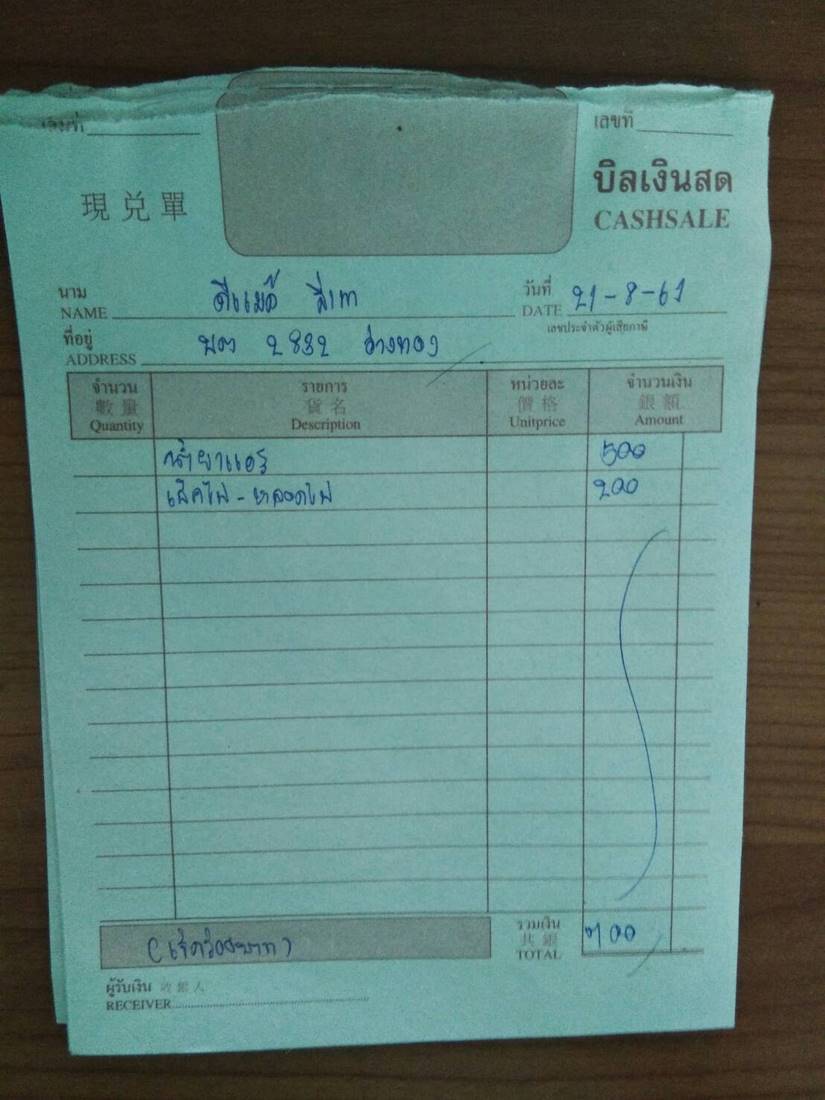 เล่มที่ เลขที่
現兑單 บิลเงินสด
CASHSALE
นาม วันที่ 21-8-61
NAME DATE
ที่อยู่ 2832 อ่างทอง เลขประจำตัวผู้เสียภาษี
ADDRESS
จำนวน รายการ หน่วยละ จำนวนเงิน
數量 貨名 價格 銀額
Quantity Description Unitprice Amount
น้ำยาแอร์ 500
เช็คไฟ - หลอดไฟ 200
รวมเงิน
共銀 700
(เจ็ดร้อยบาท) TOTAL
ผู้รับเงิน 收銀人
RECEIVER